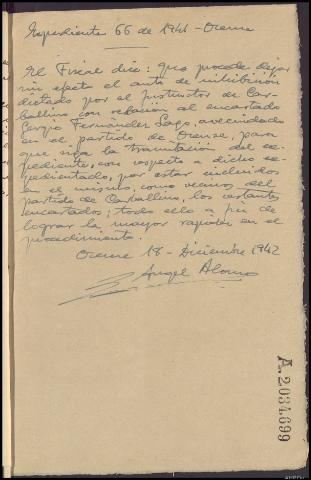 Expediente 66 de 1941 - Orense
El Fiscal dice: que procede dejar
sin efecto el auto de inhibición
dictado por el Instructor de Car-
ballino con relación al encartado
Sergio Fernández Lago, avecindado
en el partido de Orense, para
que siga la tramitación del ex-
pediente, con respecto a dicho ex-
pedientado, por estar incluidos
en el mismo, como vecinos del
partido de Carballino, los restantes
encartados; todo ello a fin de
lograr la mayor rapidez en el
procedimiento.
Orense 18 - Diciembre 1942
Angel Alonso
A.2034699